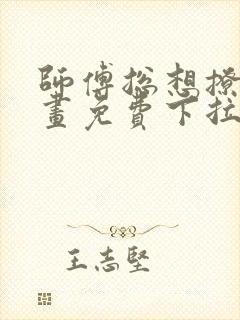 師傅總想撩
畫免費下拉
王志堅